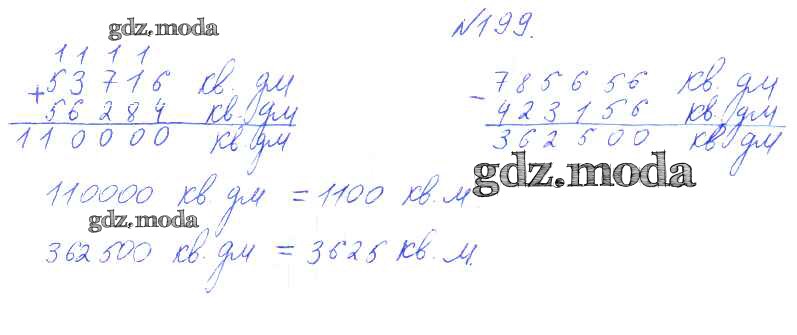 gdz.moda
№199.
1 1 1 1
+ 53716 кв. дм
56284 кв. дм
110000 кв дм
- 785656 кв. дм
423156 кв. дм
362500 кв дм
gdz.moda
110000 кв. дм = 1100 кв. м
gdz.moda
362500 кв. дм = 3625 кв. м.